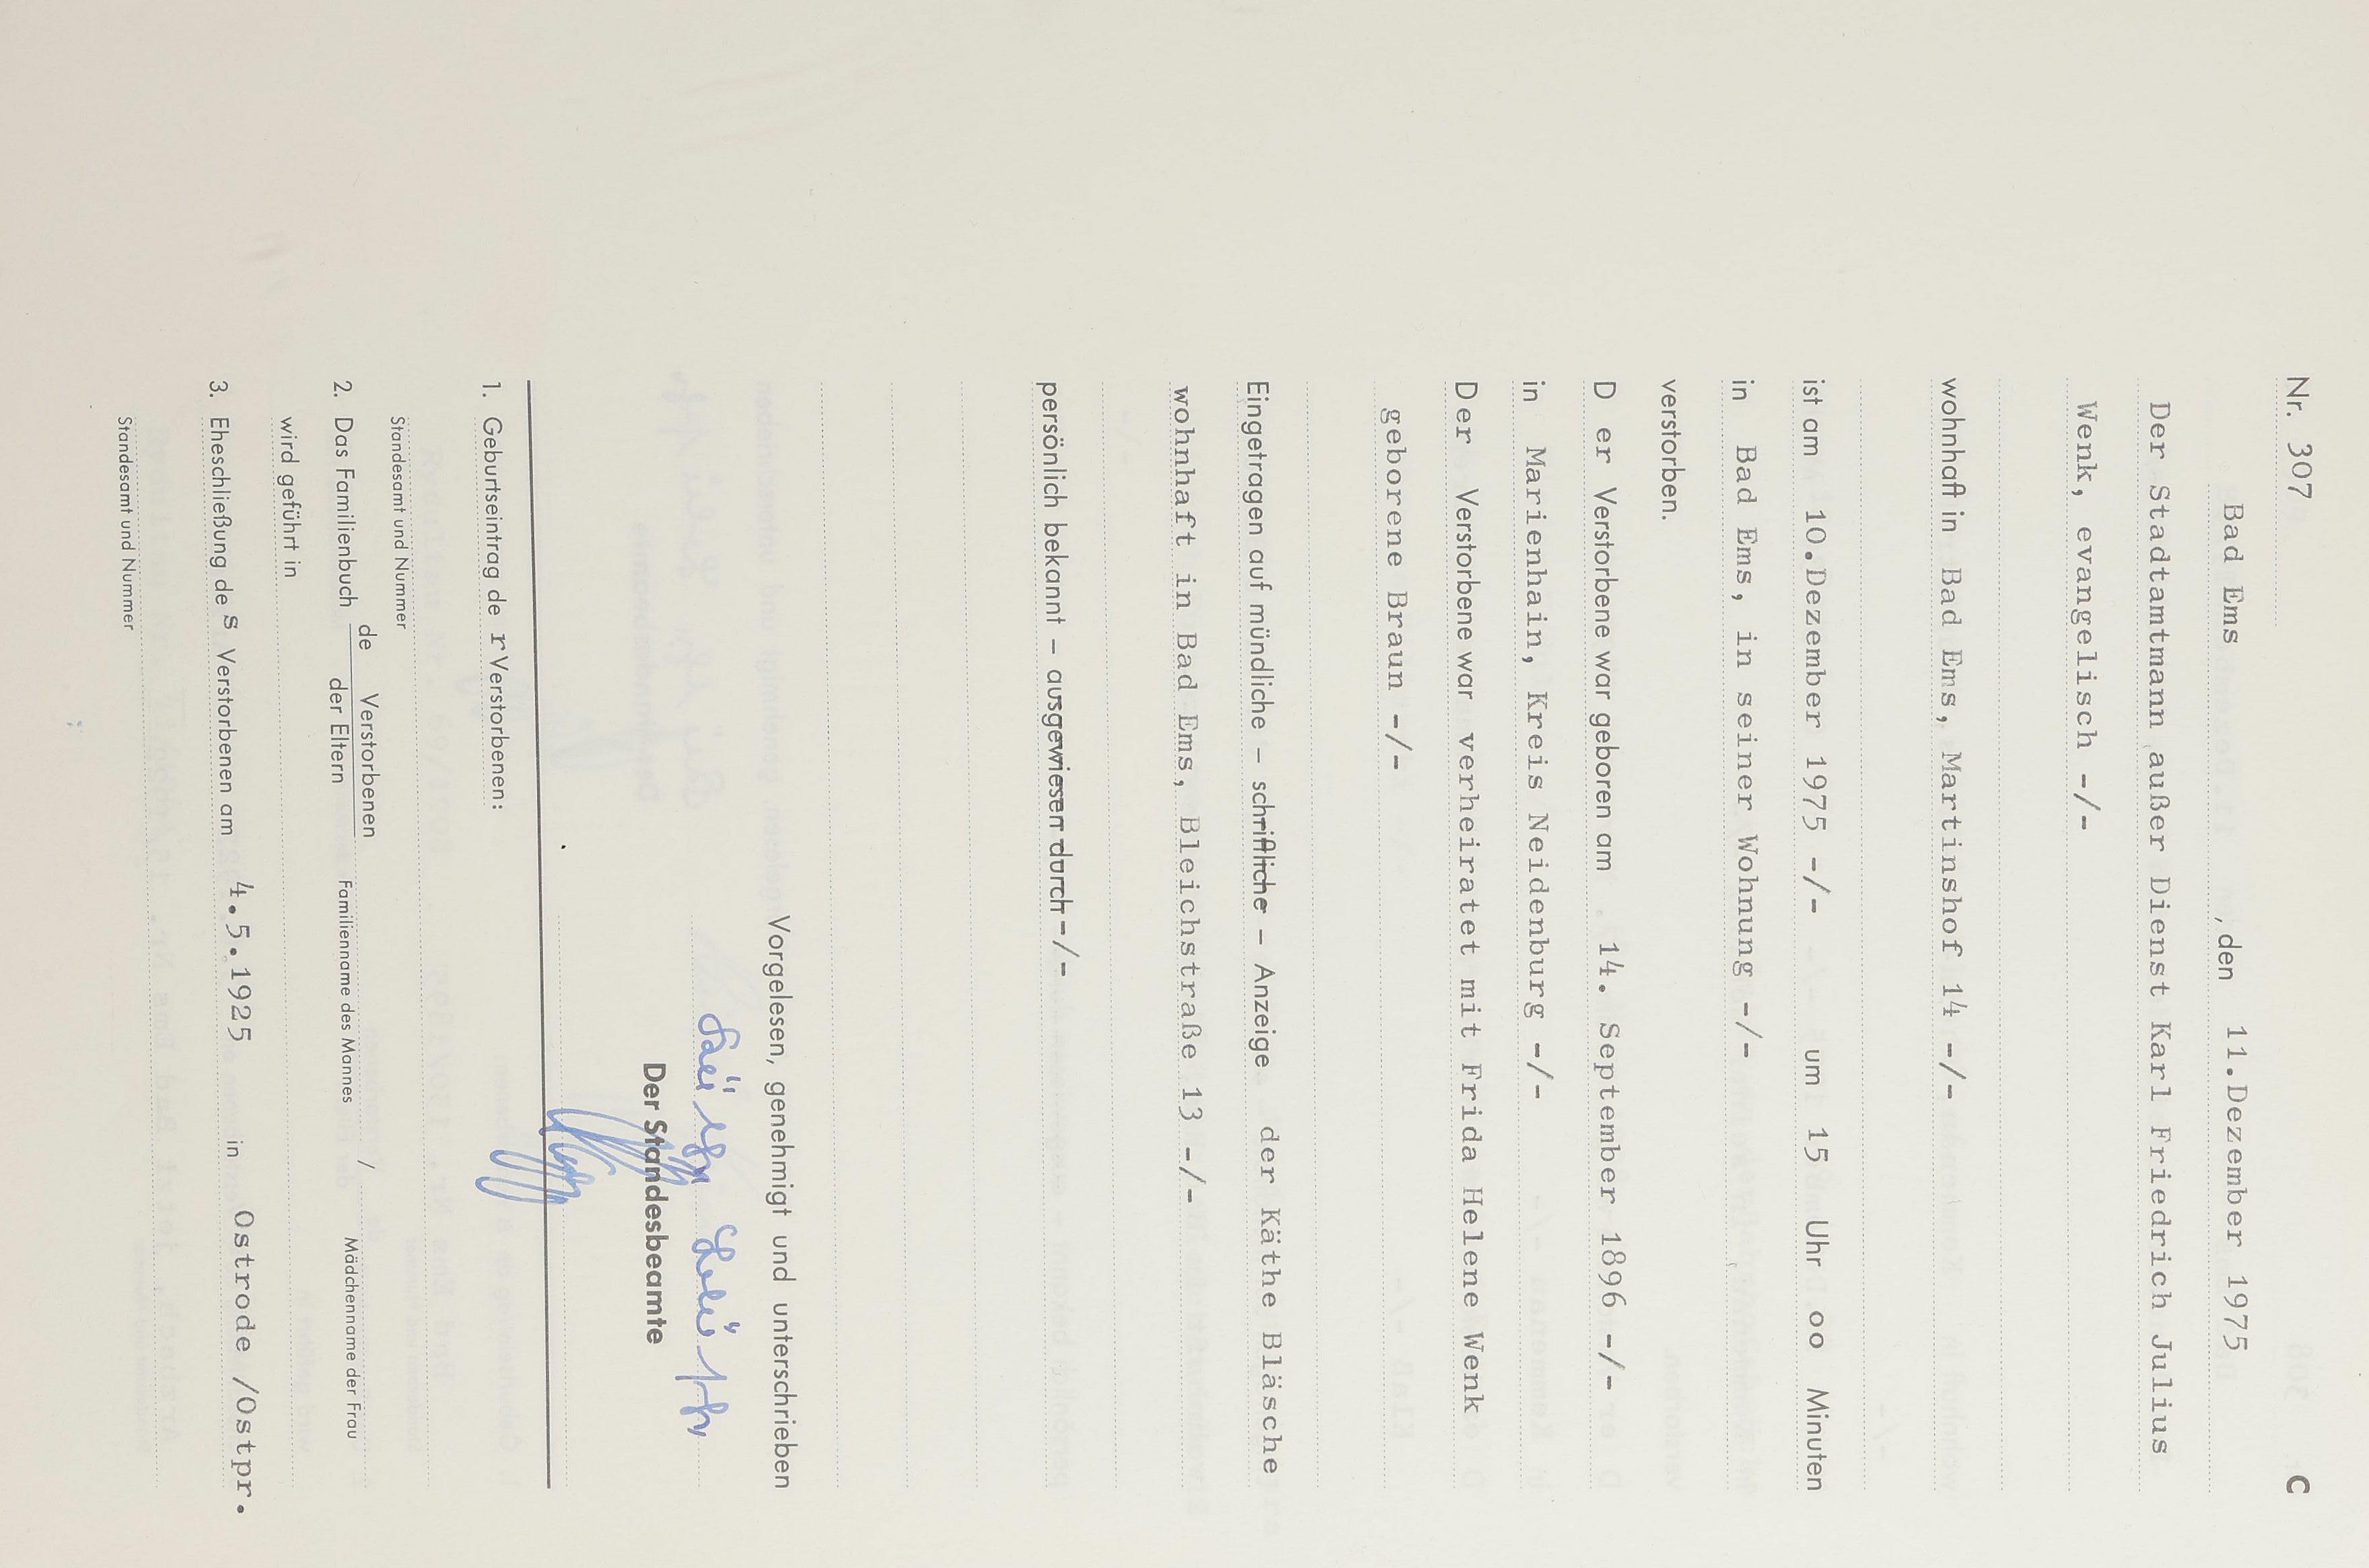 Nr. 307 C
Bad Ems , den 11.Dezember 1975
Der Stadtamtmann außer Dienst Karl Friedrich Julius
Wenk, evangelisch -/-
wohnhaft in Bad Ems, Martinshof 14 -/-
ist am 10.Dezember 1975 -/- um 15 Uhr oo Minuten
in Bad Ems, in seiner Wohnung -/-
verstorben.
D er Verstorbene war geboren am 14. September 1896 -/-
in Marienhain, Kreis Neidenburg -/-
Der Verstorbene war verheiratet mit Frida Helene Wenk
geborene Braun -/-
Eingetragen auf mündliche – schriftliche – Anzeige der Käthe Bläsche
wohnhaft in Bad Ems, Bleichstraße 13 -/-
persönlich bekannt – ausgewiesen durch -/-
Vorgelesen, genehmigt und unterschrieben
Der Standesbeamte
1. Geburtseintrag de r Verstorbenen:
Standesamt und Nummer
de Verstorbenen
2. Das Familienbuch der Eltern Familienname des Mannes / Mädchenname der Frau
wird geführt in
3. Eheschließung de s Verstorbenen am 4.5.1925 in Ostrode /Ostpr.
Standesamt und Nummer